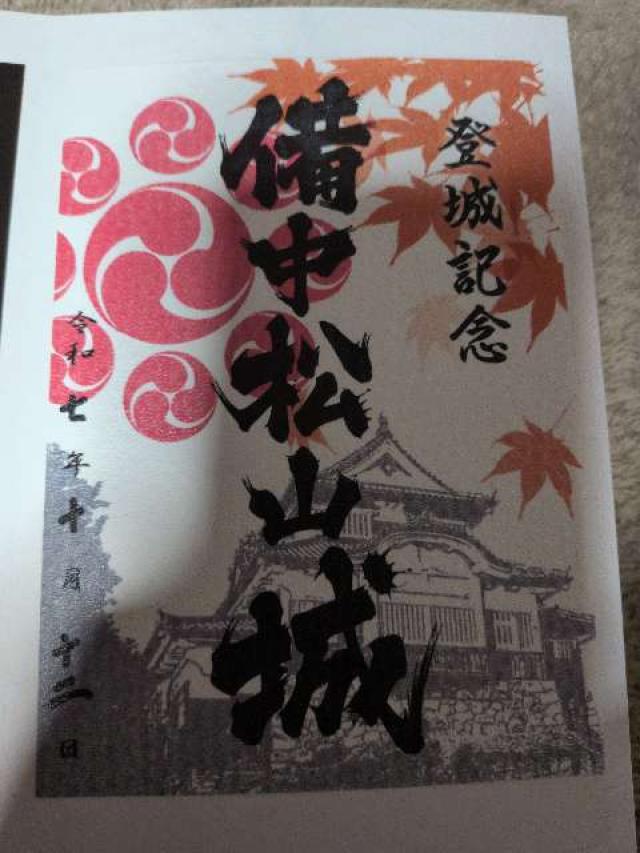 登城記念
備中松山城
令和七年十月十二日